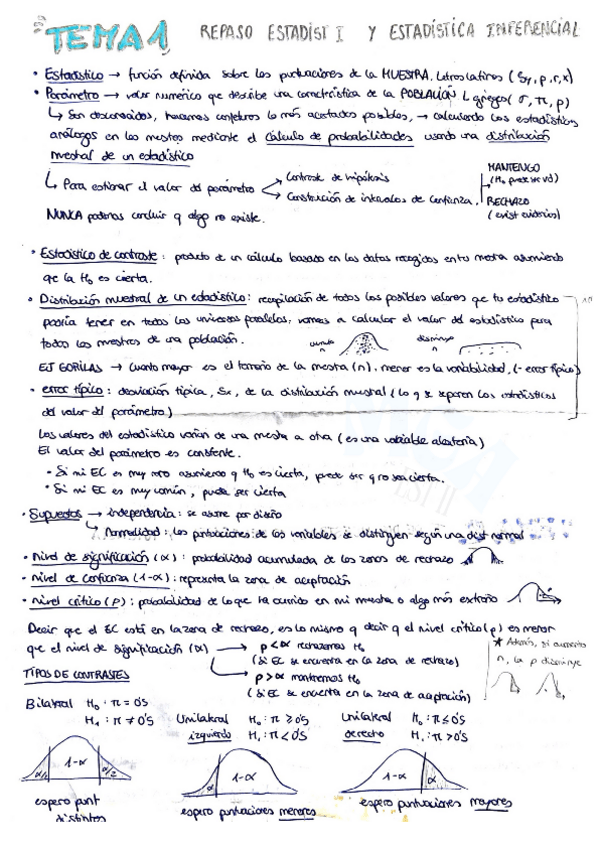 TEMA 1 REPASO ESTADIST I Y ESTADÍSTICA INFERENCIAL
• Estadístico → función definida sobre las puntuaciones de la MUESTRA. Letras latinas (Sy, p, r, x)
• Parámetro → valor numérico que describe una característica de la POBLACIÓN L griegas (σ, π, ρ)
↳ Son desconocidos, hacemos conjeturas lo más acertadas posibles, → calculando los estadísticos
análogos en las muestras mediante el cálculo de probabilidades usando una distribución
muestral de un estadístico
↳ Para estimar el valor del parámetro
Contraste de hipótesis
Construcción de intervalos de confianza.
MANTENGO
(H₀ puede ser vd)
RECHAZO
(exist evidencias)
NUNCA podemos concluir q algo no existe.
• Estadístico de contraste: producto de un cálculo basado en los datos recogidos en tu muestra asumiendo
que la H₀ es cierta.
• Distribución muestral de un estadístico: recopilación de todos los posibles valores que tu estadístico
podría tener en todos los universos paralelos, vamos a calcular el valor del estadístico para
todas las muestras de una población.
aumenta n
disminuye n
EJ GORILAS → Cuanto mayor es el tamaño de la muestra (n), menor es la variabilidad, (- error típico)
• error típico: desviación típica, Sx, de la distribución muestral (lo q se separan los estadísticos
del valor del parámetro)
Los valores del estadístico varían de una muestra a otra (es una variable aleatoria)
El valor del parámetro es constante.
• Si mi EC es muy raro asumiendo q H₀ es cierta, puede ser q no sea cierta.
• Si mi EC es muy común, puede ser cierta
• Supuestos → independencia: se asume por diseño
↳ Normalidad: las puntuaciones de las variables se distribuyen según una dist normal
• Nivel de significación (α): probabilidad acumulada de las zonas de rechazo
• nivel de confianza (1-α): representa la zona de aceptación
• nivel crítico (p): probabilidad de lo que ha ocurrido en mi muestra o algo más extraño
Decir que el EC está en la zona de rechazo, es lo mismo q decir q el nivel crítico (p) es menor
que el nivel de significación (α)
→ p<α rechazamos H₀
(Si EC se encuentra en la zona de rechazo)
→ p>α mantenemos H₀
(Si EC se encuentra en la zona de aceptación)
★ Además, si aumento
n, la p disminuye
TIPOS DE CONTRASTES
Bilateral H₀: π = 0'5
H₁: π ≠ 0'5
Unilateral H₀: π ≥ 0'5
izquierdo H₁: π < 0'5
Unilateral H₀: π ≤ 0'5
derecho H₁: π > 0'5
α/2 1-α α/2
α 1-α
1-α α
espero punt
distintas
espero puntuaciones menores
espero puntuaciones mayores